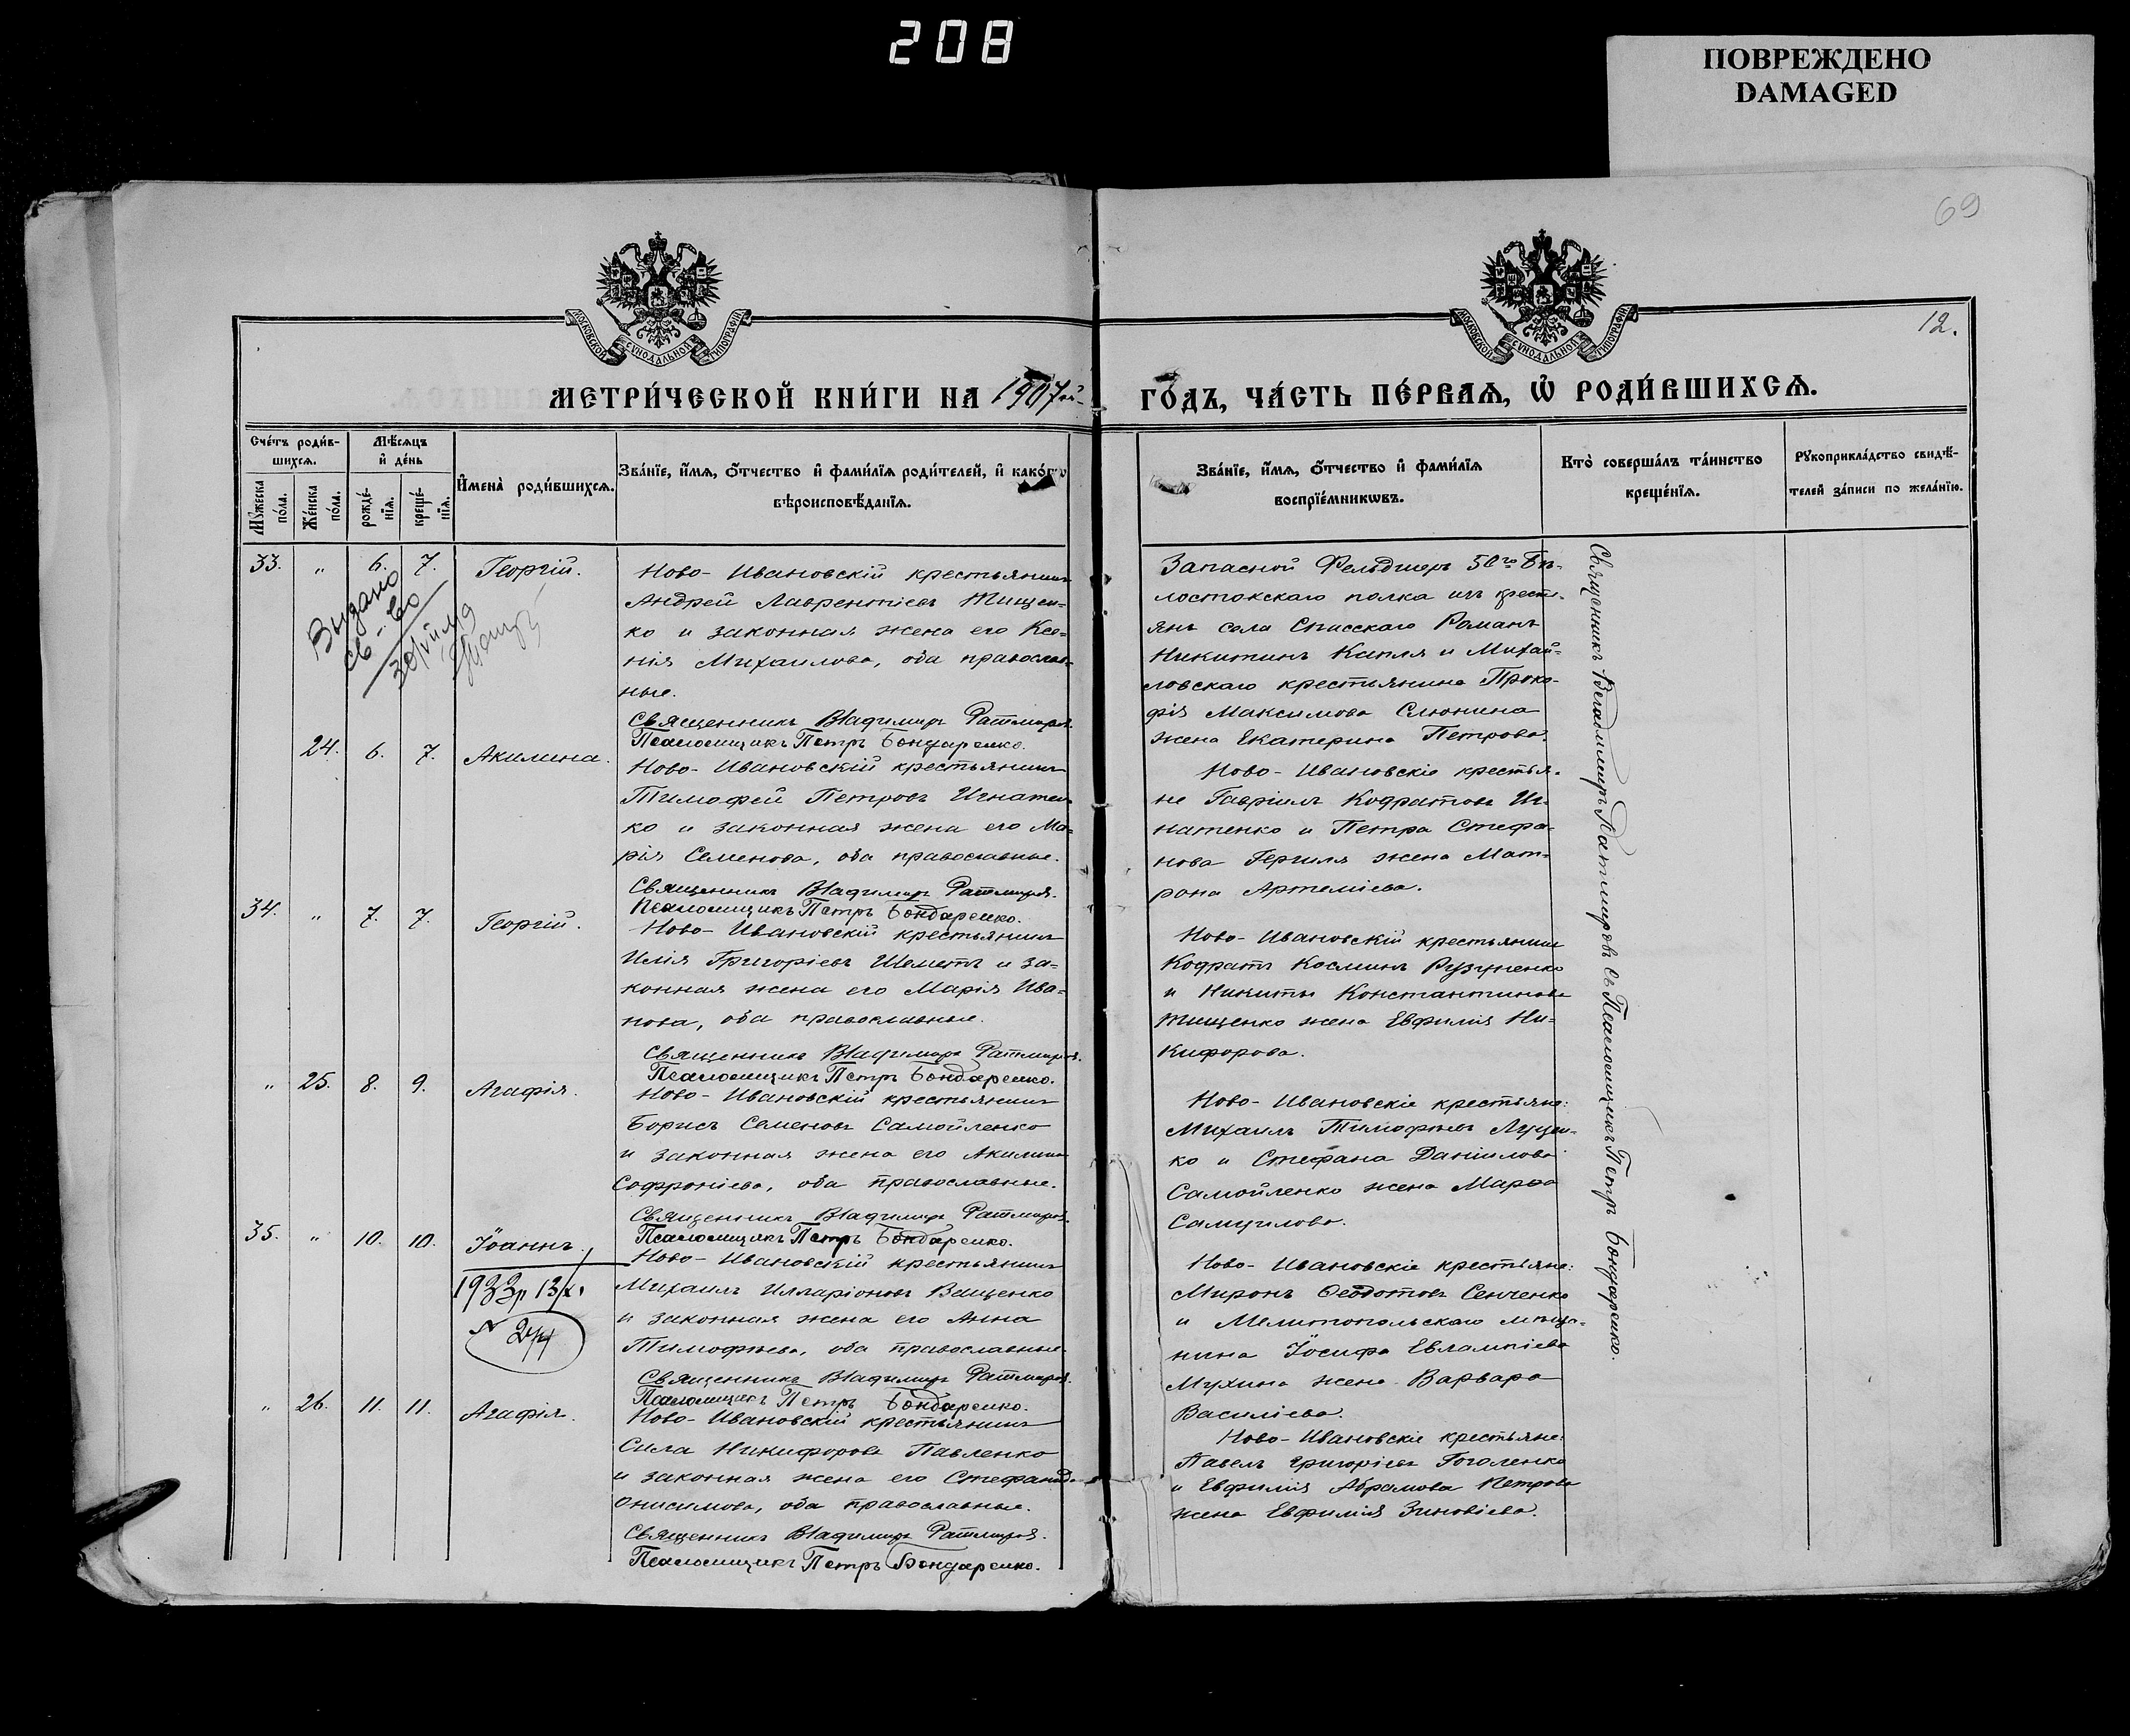 208
ПОВРЕЖДЕНО
DAMAGED
69
12.
МОСКОВСКОЙ СѴНОДАЛЬНОЙ ТИПОГРАФІИ
МОСКОВСКОЙ СѴНОДАЛЬНОЙ ТИПОГРАФІИ
МЕТРИ́ЧЕСКОЙ КНИ́ГИ НА 1907й
ГО́ДЪ, ЧА́СТЬ ПЕ́РВАѦ, Ѡ҆ РОДИ́ВШИХСѦ.
Сче́тъ роди́в-
шихсѧ.
Мужеска по́ла.
Же́нска по́ла.
Мѣ́сѧцъ
и҆ де́нь
рожде́-
нїѧ.
креще́-
нїѧ.
И҆мена̀ роди́вшихсѧ.
Зва́нїе, и҆́мѧ, ѻ҆́тчество и҆ фами́лїѧ роди́телей, и҆ како́гѡ
вѣроисповѣ́данїѧ.
Зва́нїе, и҆́мѧ, ѻ҆́тчество и҆ фами́лїѧ
воспрїе́мникѡвъ.
Кто̀ соверша́лъ та́инство
креще́нїѧ.
Рꙋкоприкла́дство свидѣ́-
телей за́писи по жела́нїю.
33. " 6. 7. Георгій.
Выдано
св-во
Ново-Ивановскій крестьянинъ
Андрей Лаврентіевъ Тищен-
ко и законная жена его Ксе-
нія Михаилова, оба православ-
ные.
Священникъ Владимиръ Ратмиров.
Псаломщикъ Петръ Бондаренко.
Запасной Фельдшеръ 50го Бѣ-
лостокскаго полка изъ крестьянъ
села Спасскаго Романъ
Никитинъ Капля и Михай-
ловскаго крестьянина Проко-
фія Максимова Слюнина
жена Екатерина Петрова.
24. 6. 7. Акилина.
Ново-Ивановскій крестьянинъ
Тимофей Петровъ Игнатен-
ко и законная жена его Ма-
рія Семенова, оба православные.
Священникъ Владимиръ Ратмиров.
Псаломщикъ Петръ Бондаренко.
Ново-Ивановскіе крестья-
не Гавріилъ Кодратовъ Иг-
натенко и Петра Стефа-
нова жена Мат-
рона Артеміева.
34. " 7. 7. Георгій.
Ново-Ивановскій крестьянинъ
Илія Григоріевъ Шеметъ и за-
конная жена его Марія Ива-
нова, оба православные.
Священникъ Владимиръ Ратмиров.
Псаломщикъ Петръ Бондаренко.
Ново-Ивановскій крестьянинъ
Кодратъ Косминъ
и Никиты Константинова
Тищенко жена Евфимія Ни-
кифорова.
" 25. 8. 9. Агафія.
Ново-Ивановскій крестьянинъ
Борисъ Семеновъ Самойленко
и законная жена его Акилина
Софроніева, оба православные.
Священникъ Владимиръ Ратмиров.
Псаломщикъ Петръ Бондаренко.
Ново-Ивановскіе крестьяне:
Михаилъ Тимофѣевъ Луцен-
ко и Стефана Даніилова
Самойленко жена Марѳа
Самуилова.
35. " 10. 10. Іоаннъ.
1933р 13/X.
N 244
Ново-Ивановскій крестьянинъ
Михаилъ Илларіоновъ Ващенко
и законная жена его Анна
Тимофѣева, оба православные.
Священникъ Владимиръ Ратмиров.
Псаломщикъ Петръ Бондаренко.
Ново-Ивановскіе крестьяне:
Миронъ Ѳеодотовъ Сенченко
и Мелитопольскаго мѣща-
нина Іосифа Евлампіева
Мухина жена Варвара
Василіева.
" 26. 11. 11. Агафія.
Ново-Ивановскій крестьянинъ
Сила Никифоровъ Павленко
и законная жена его Стефанида
Онисимова, оба православные.
Священникъ Владимиръ Ратмиров.
Псаломщикъ Петръ Бондаренко.
Ново-Ивановскіе крестьяне:
Павелъ Григоріевъ Гоголенко
и Евфимія Абрамова Петрова
жена Евфимія Зиновіева.
Священникъ Владимиръ Ратмировъ съ Псаломщикъ Петръ Бондаренко.